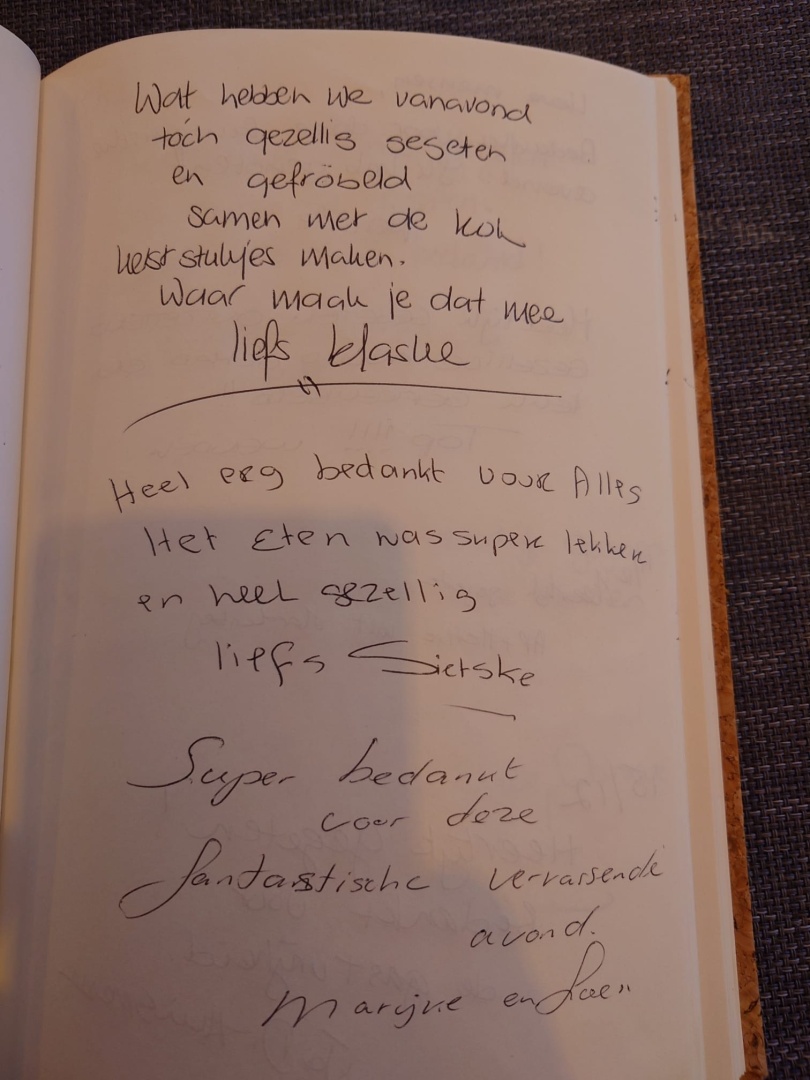 Wat hebben we vanavond
tóch gezellig gegeten
en gefröbeld
samen met de kok
kerststukjes maken.
Waar maak je dat mee
liefs Klaske
Heel erg bedankt voor Alles
Het Eten was super lekker
en heel gezellig
liefs Sietske
Super bedankt
voor deze
fantastische verrassende
avond.
Marijke en